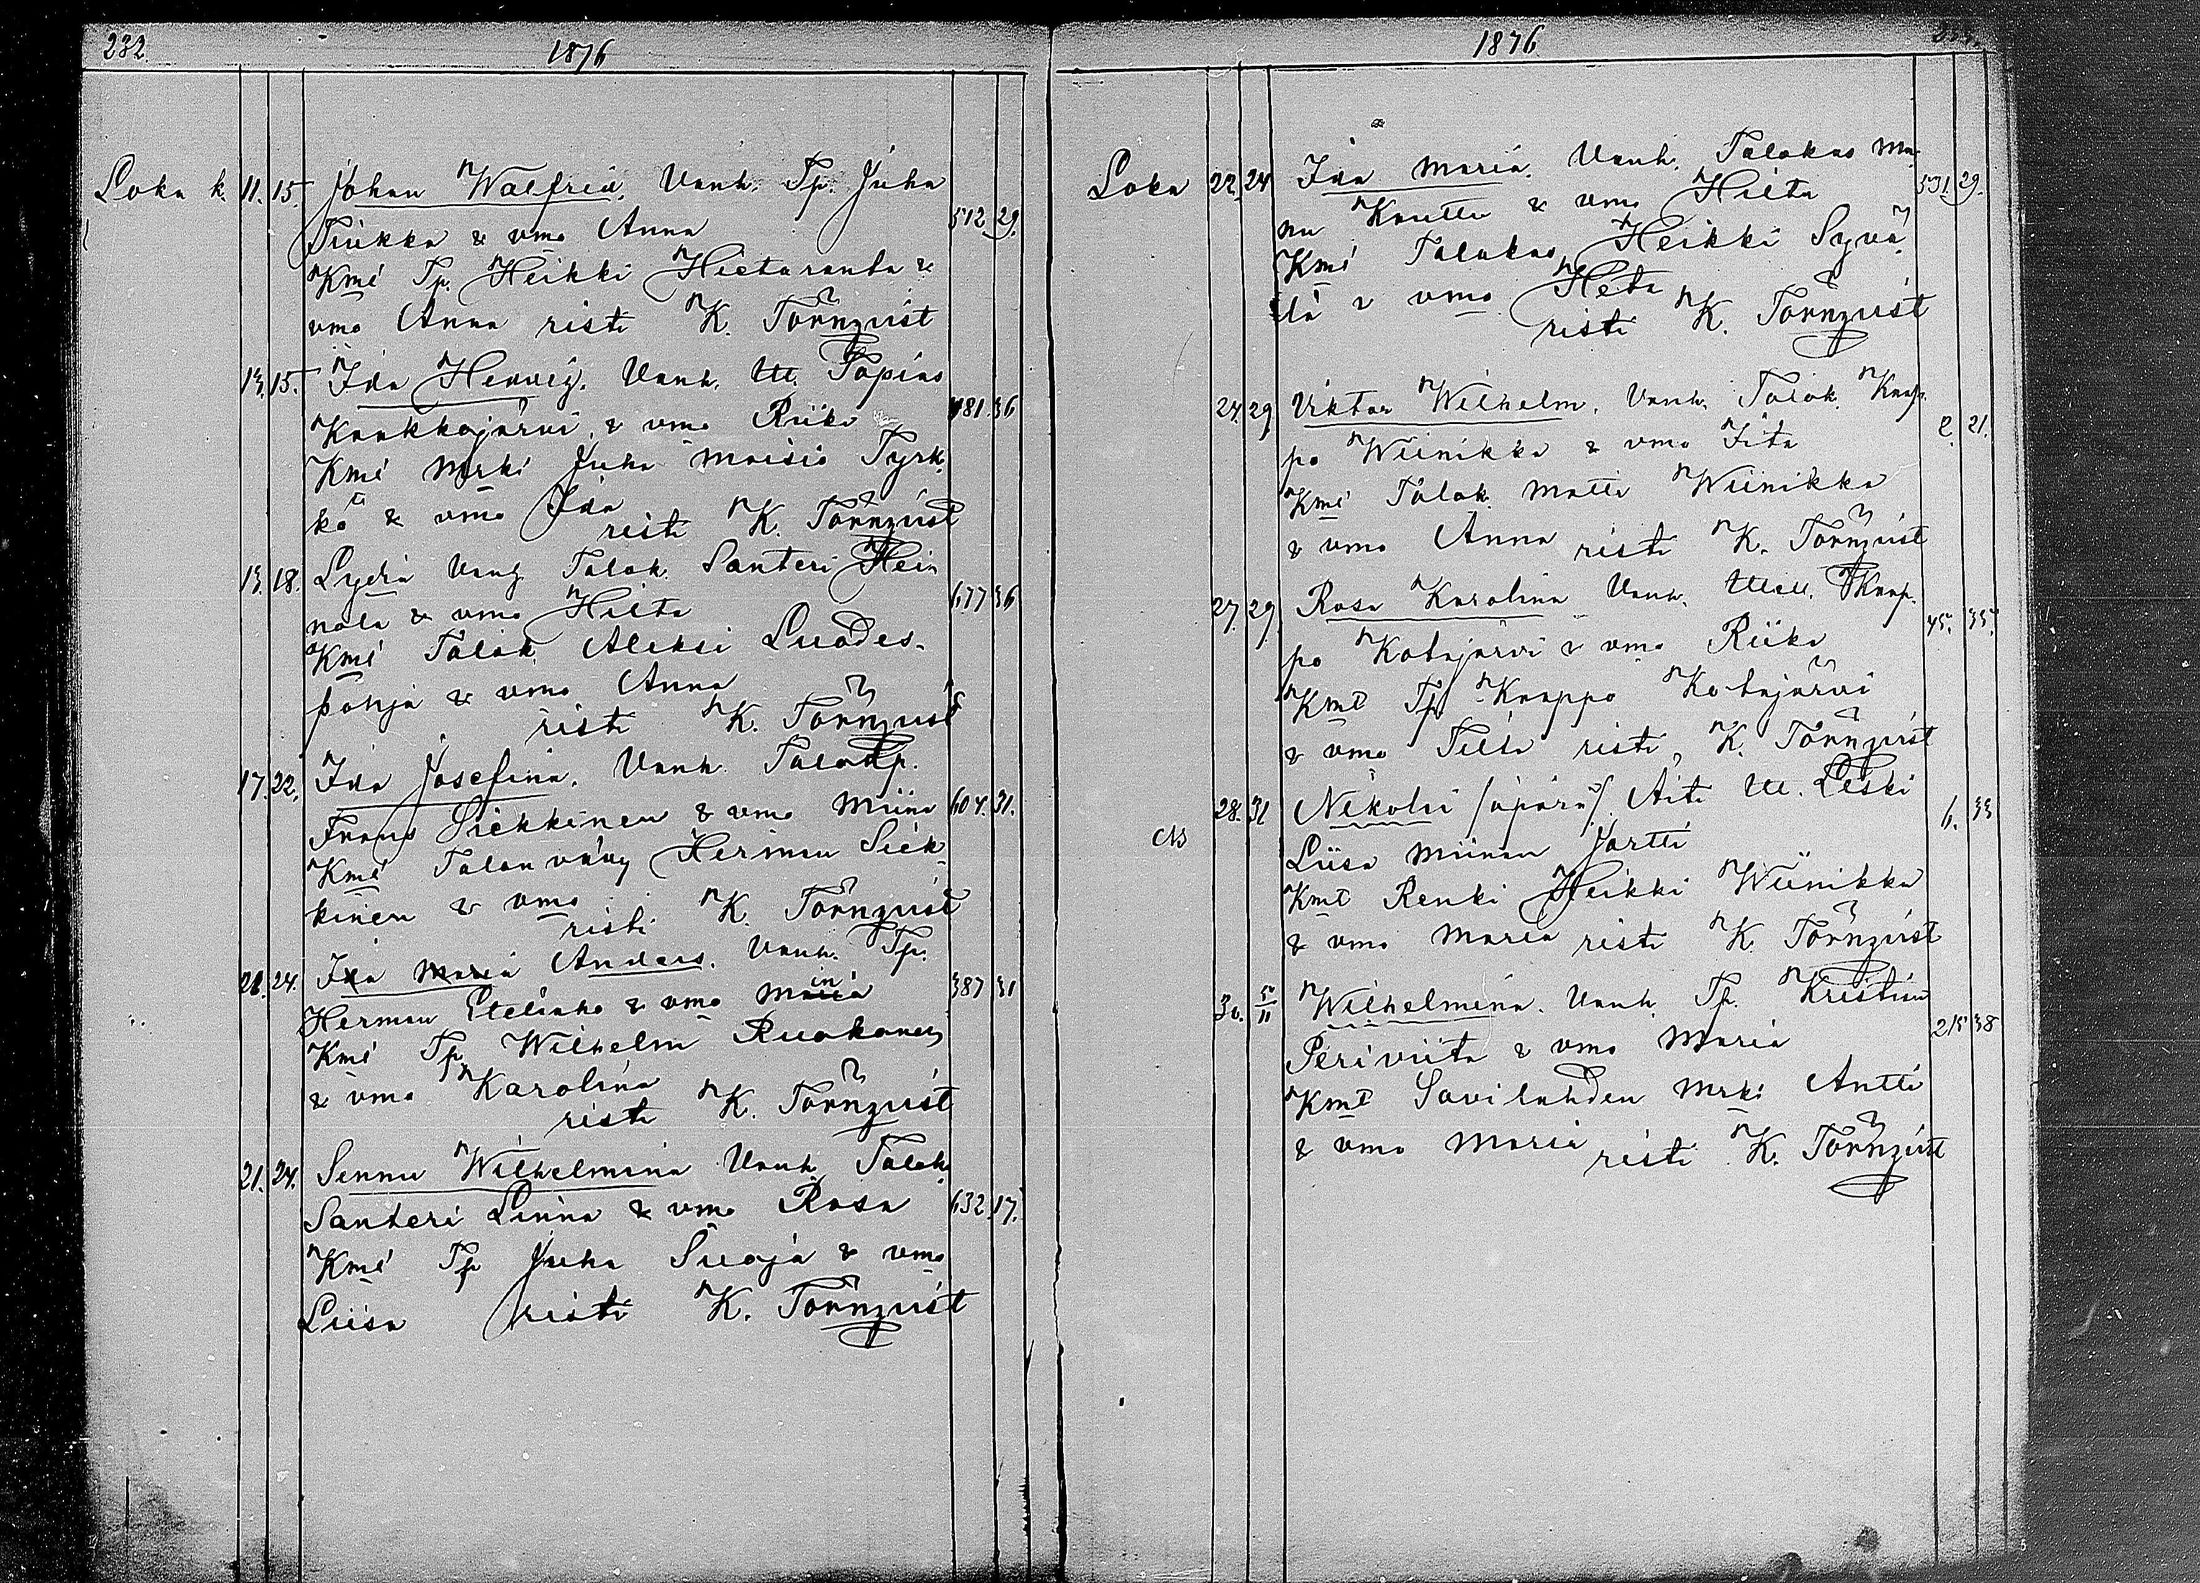 232.
1876
Loka k. 11. 15. Johan Walfrid. Vanh. Tp. Juha
Tiukka & vmo Anna 512. 29.
Kmi Tp. Heikki Hietaranta &
vmo Anna risti K. Törnqvist
13. 15. Ida Hedvig. Vanh. Itl. Topias
Kaakkojärvi & vmo Riika 481. 36
Kmi Mrki Juha Maisio Tyrk-
kö & vmo Ida
risti K. Törnqvist
13. 18. Lydia Vanh Talok. Santeri Hei-
nola & vmo Hilta 677 36
Kmi Talok. Aleksi Luodes-
pohja & vmo Anna
risti K. Törnqvist
17. 22. Ida Josefina. Vanh. Talollp.
Frans Siekkinen & vmo Miina 604. 31.
Kmi Talon vävy Herman Siek-
kinen & vmo
risti K. Törnqvist
21. 24. Ida Maria Anders. Vanh. Tp.
Herman Eteläaho & vmo Maria in 387 31
Kmi Tp. Wilhelm Ruokonen
& vmo Karolina
risti K. Törnqvist
21. 24. Sennu Wilhelmina Vanh Talok.
Santeri Linna & vmo Rosa 632. 17.
Kmi Tp Juha Suoja & vmo
Liisa risti K. Törnqvist
1876
Loka 22. 24 Ida Maria. Vanh. Talokas Ma-
nu Knutti & vmo Hilta 531. 29.
Kmi Talokas Heikki Syvä-
lä & vmo Heta
risti K. Törnqvist
24. 29 Viktor Wilhelm. Vanh. Talok. Kaap-
po Wiinikka & vmo Iita 2. 21.
Kmi Talok. Matti Wiinikka
& vmo Anna risti K. Törnqvist
27. 29 Rosa Karolina Vanh. Kaap-
po Kotajärvi & vmo Riika 45. 35.
Kmt Tp. Kaappo Kotajärvi
& vmo Tilta risti K. Törnqvist
28. 31 Nikolai /äpärä/. Äiti Itl. Leski
Liisa Miinan Jortti 6. 33
Kmt Renki Heikki Wiinikka
& vmo Maria risti K. Törnqvist
30. 5/11 Wilhelmina. Vanh. Tp. Kristian
Periviita & vmo Maria 215 38
Kmt Savilahden Mrki Antti
& vmo Maria risti K. Törnqvist